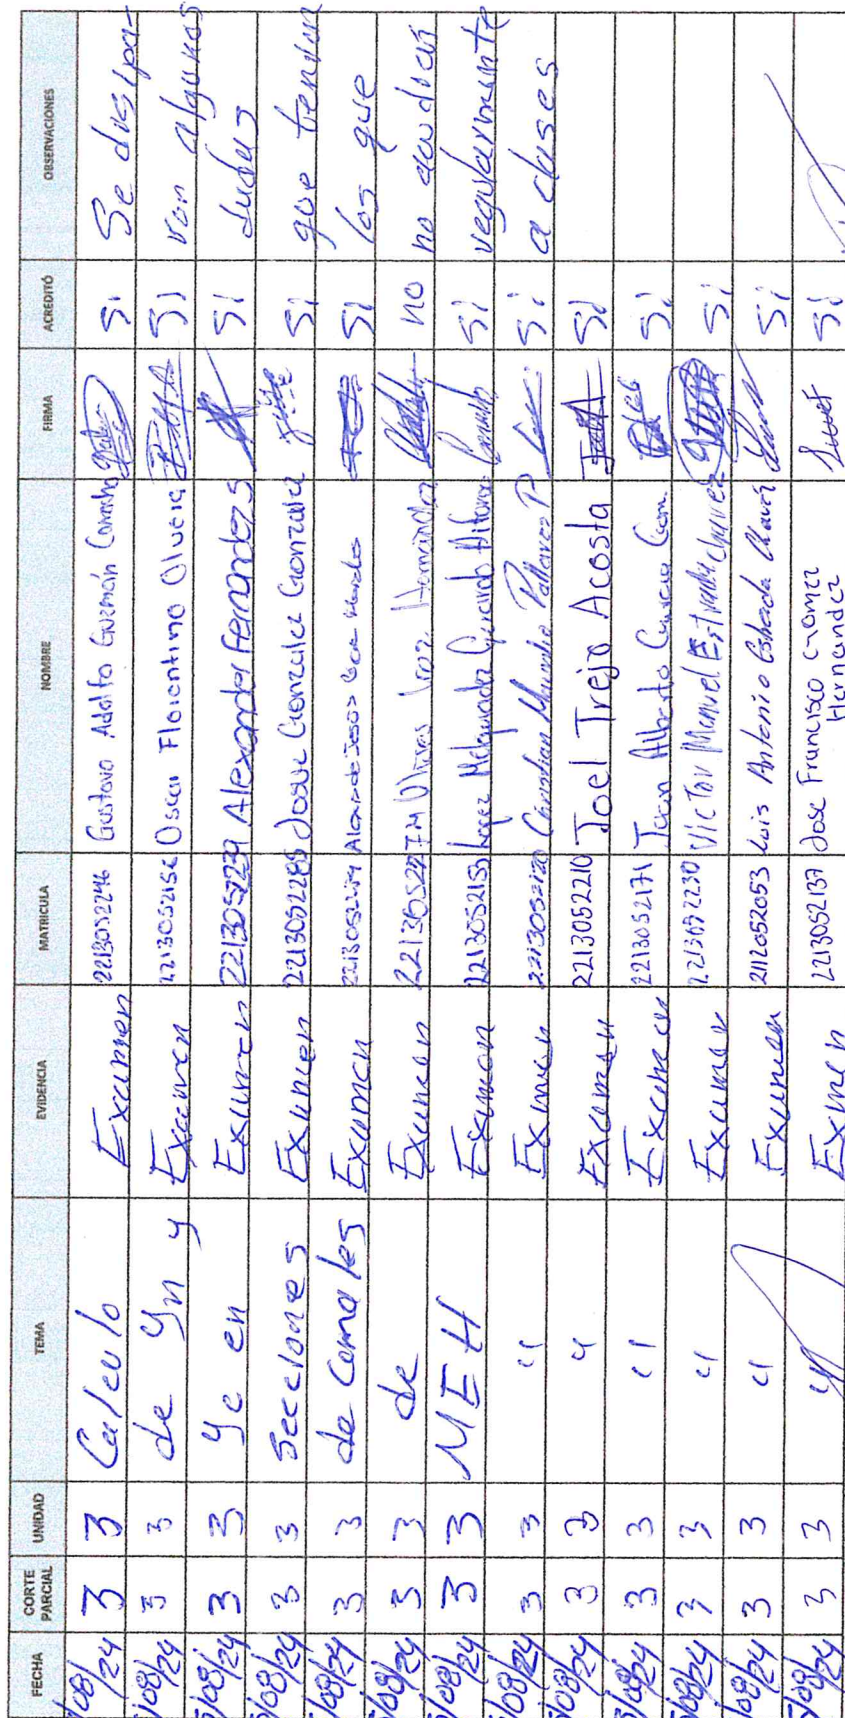 FECHA CORTE PARCIAL UNIDAD TEMA EVIDENCIA MATRICULA NOMBRE FIRMA ACREDITÓ OBSERVACIONES
/08/24 3 3 Calculo Examen 2213052246 Gustavo Adolfo Guzmán Camacho Si Se disipa-
/08/24 3 3 de Yn y Examen 2213052152 Oscar Florentino Olvera Si ron algunas
/08/24 3 3 Yc en Examen 2213052239 Alexander Fernandez S Si dudas
/08/24 3 3 Secciones Examen 2213052285 Josue Gonzalez Gonzalez Si que tenian
/08/24 3 3 de Canales Examen de Jesús Si los que
/08/24 3 3 de Examen no no acudian
/08/24 3 3 MEH Examen 2213052153 Lopez Gerardo Si regularmente
/08/24 3 3 " Exmen 2213052120 Christian Pallares P Si a clases
/08/24 3 3 " Examen 2213052210 Joel Trejo Acosta Si
/08/24 3 3 " Examen 2213052171 Juan Alberto Garcia Si
/08/24 3 3 " Examen 2213052230 Victor Manuel Estrada chavez Si
/08/24 3 3 " Examen 2112052053 Luis Antonio Estrada Chavez Si
/08/24 3 3 " Exmen 2213052137 Jose Francisco Gomez Si
Hernandez